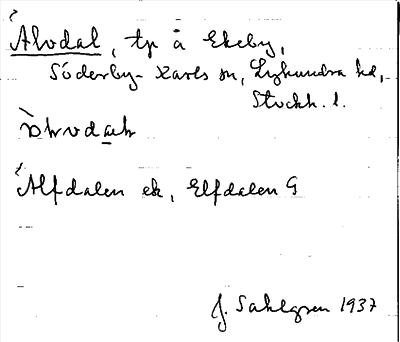 Älvdal, tp å Ekeby,
Söderby-Karls sn, Lyhundra hd,
Stockh. l.
Älfdalen ek, Elfdalen G
J. Sahlgren 1937